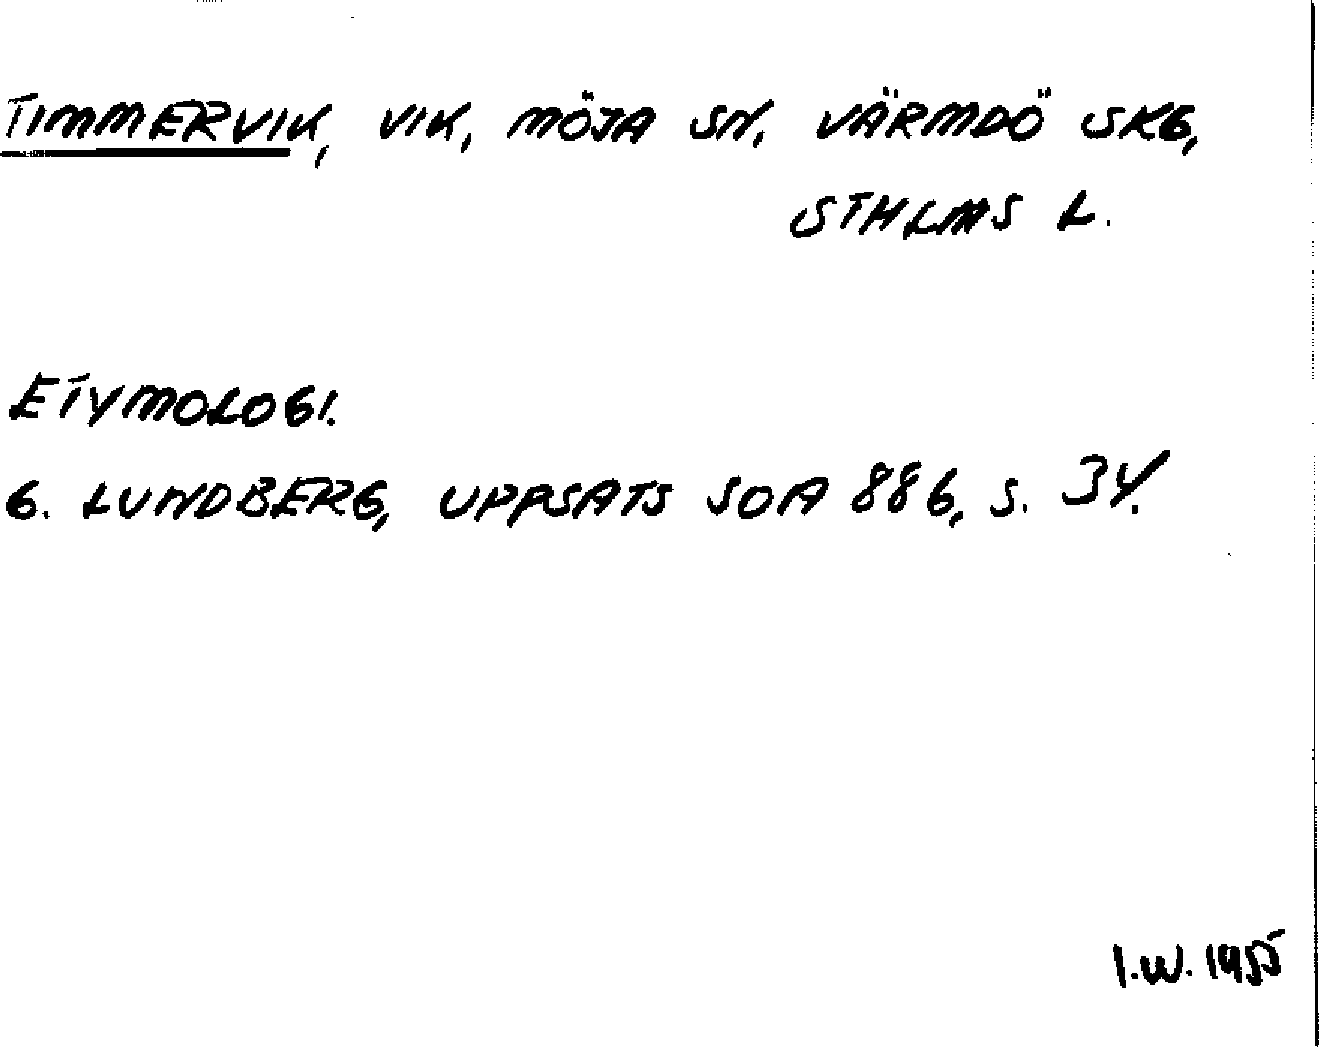 TIMMERVIK, VIK, MÖJA SN, VÄRMDÖ SKG,
STHLMS L.
ETYMOLOGI.
G. LUNDBERG, UPPSATS SOA 886, S. 34.
I.W. 1955